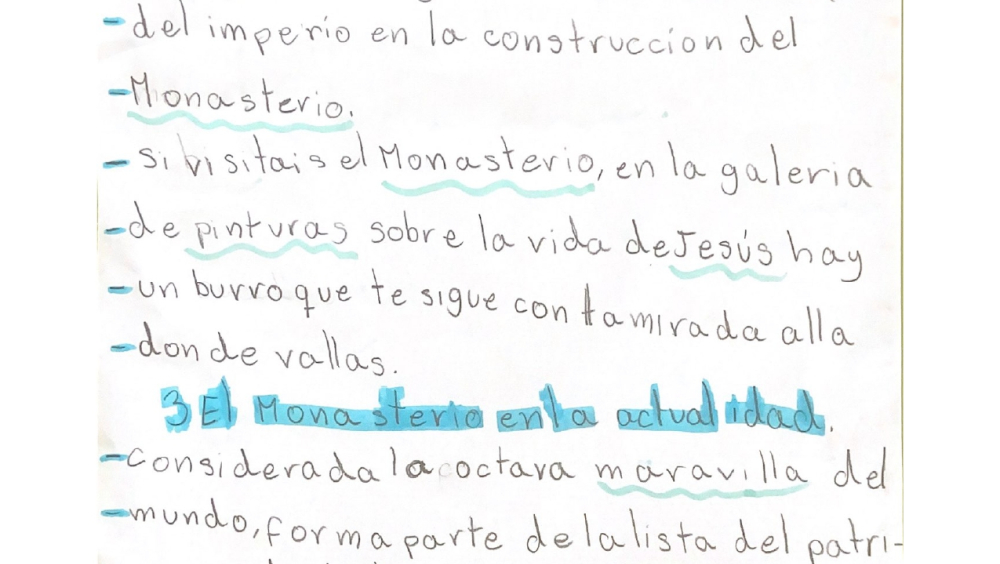 - del imperio en la construccion del
- Monasterio.
- si visitais el Monasterio, en la galeria
- de pinturas sobre la vida de Jesús hay
- un burro que te sigue con la mirada alla
- donde vallas.
3 El Monasterio en la actualidad.
- considerada la octava maravilla del
- mundo, forma parte de la lista del patri-